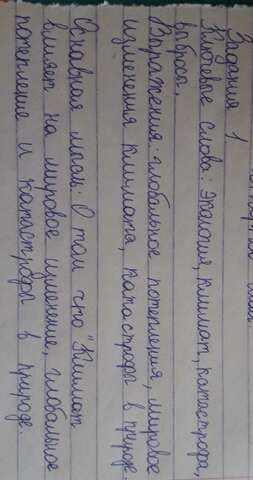 Задания 1
Ключевые слова: Экология, климат, катастрофа,
выброси,
Выражения: глобальное потепления, мировое
изменения климата, катастрофы в природе.
Основная мысль: О том что "Климат
влияет на мировое изменение, глобальное
потепление и катастрофы в природе.